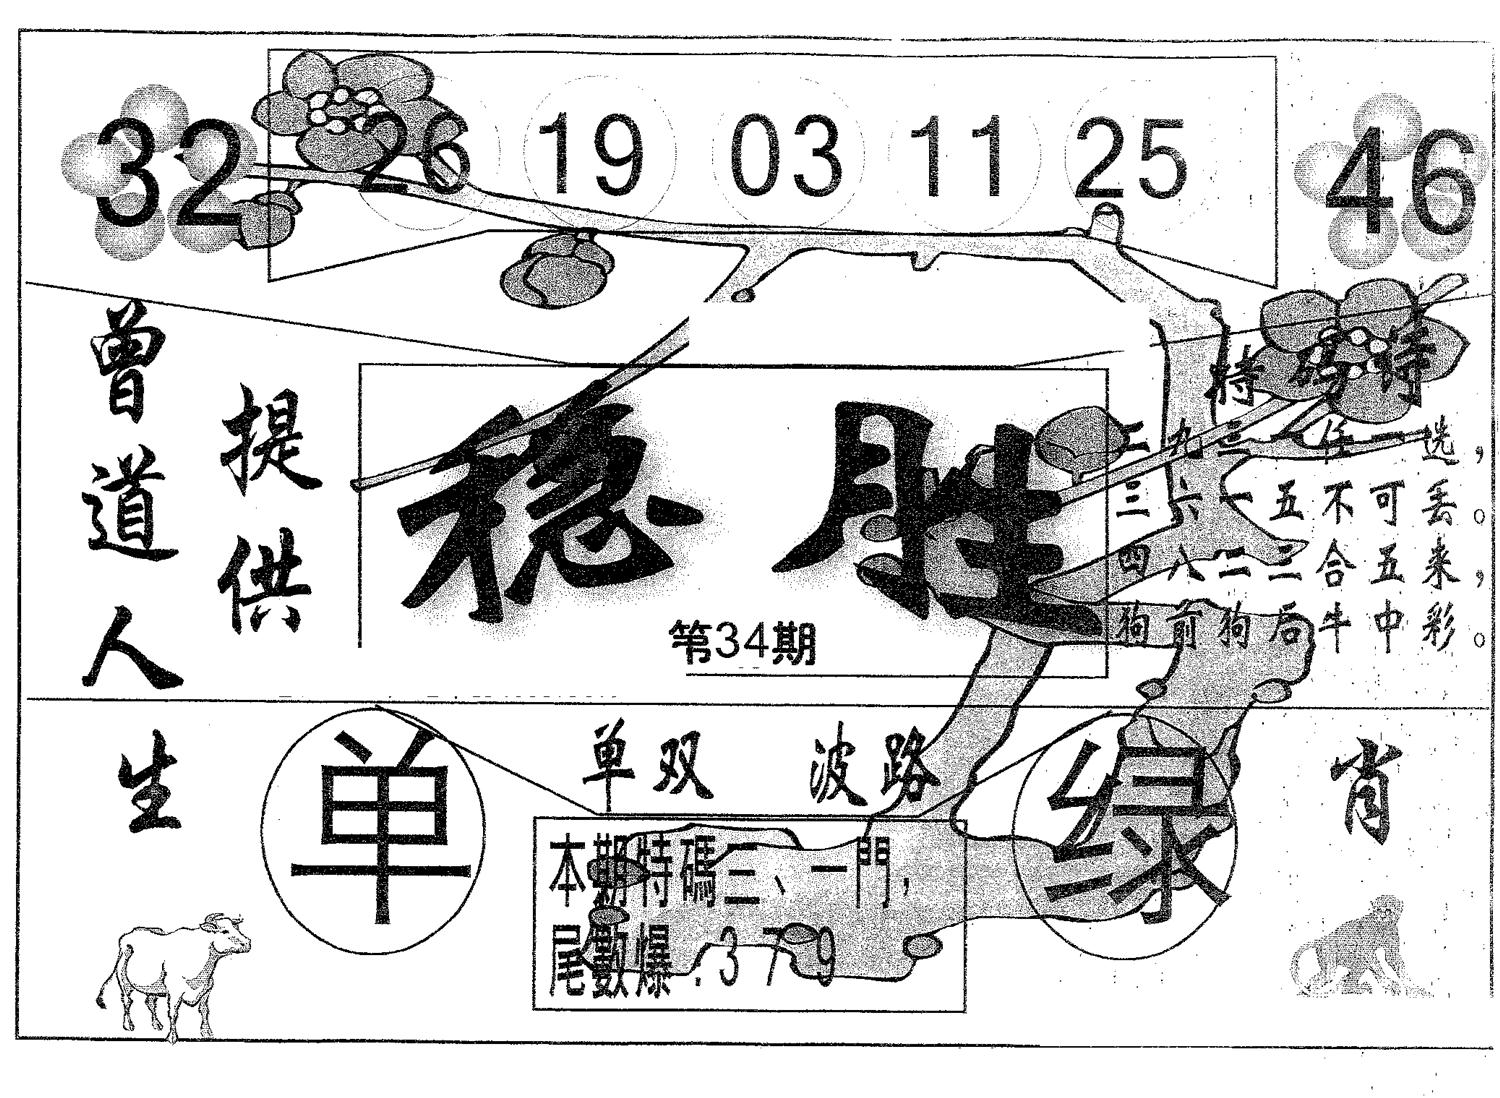 32 26 19 03 11 25 46
曾道人
提供
稳胜
第34期
特碼诗
二九三一任一选，
三六一五不可丢。
四八二三合五来，
狗前狗后牛中彩。
生
单
单双 波路
绿
肖
本期特碼三、一門，
尾數爆：3 7 9